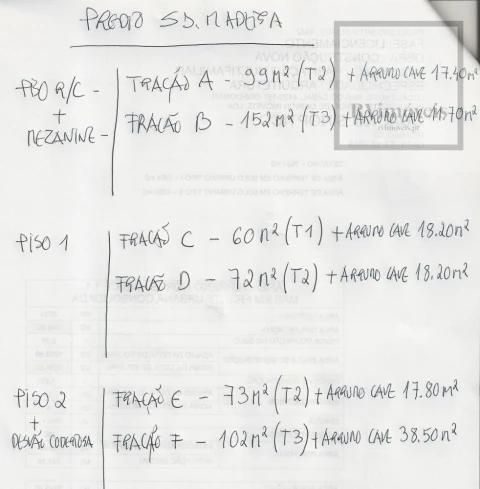 PREDIO SD. MADORA
PISO R/C + MEZANINE - FRAÇÃO A - 99m² (T2) + ARRUMO CAVE 17.40m²
FRAÇÃO B - 152m² (T3) + ARRUMO CAVE 11.70m²
RVimóveis
rvimoveis.pt
PISO 1 FRAÇÃO C - 60m² (T1) + ARRUMO CAVE 18.20m²
FRAÇÃO D - 72m² (T2) + ARRUMO CAVE 18.20m²
PISO 2 + DESVÃO COBERTURA FRAÇÃO E - 73m² (T2) + ARRUMO CAVE 17.80m²
FRAÇÃO F - 102m² (T3) + ARRUMO CAVE 38.50m²